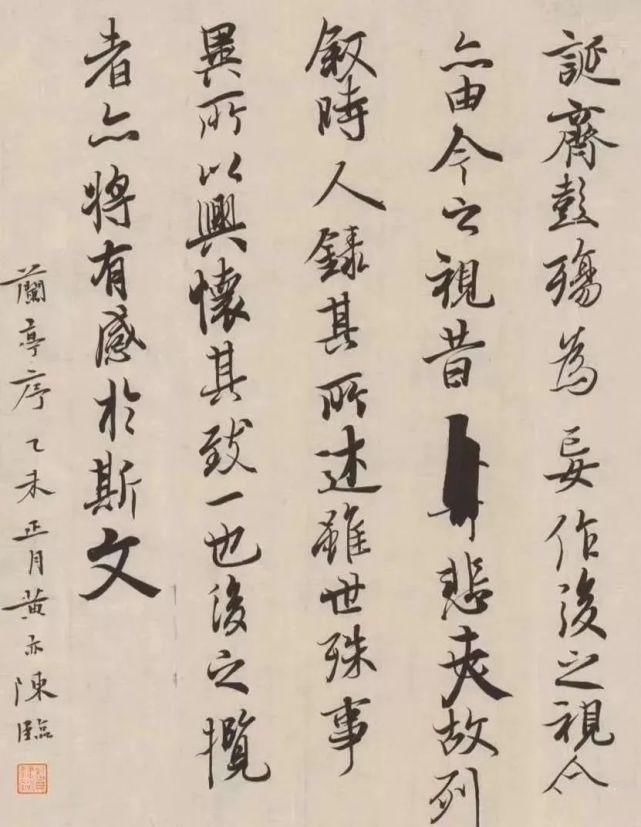 誕齊彭殤為妄作後之視今
亦由今之視昔悲夫故列
叙時人錄其所述雖世殊事
異所以興懷其致一也後之攬
者亦將有感於斯文
蘭亭序乙未正月黄亦陳臨